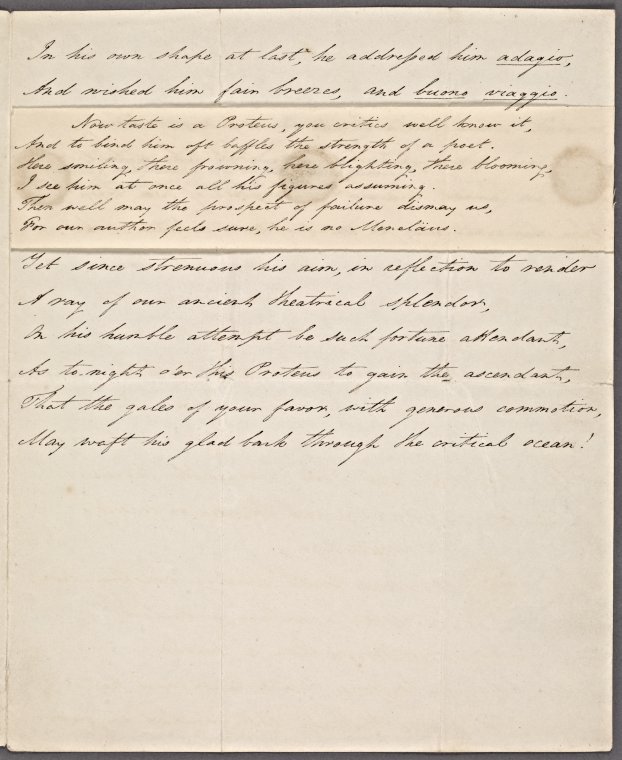 In his own shape at last, he addressed him adagio,
And wished him fair breezes, and buono viaggio.
Now taste is a Proteus, you critics well know it,
And to bind him oft baffles the strength of a poet.
Here smiling, there frowning, here blighting, there blooming,
I see him at once all his figures assuming.
Then well may the prospect of failure dismay us,
For our author feels sure, he is no Menelaüs.
Yet since strenuous his aim, in reflection to render
A ray of our ancient theatrical splendor,
In his humble attempt be such fortune attendant,
As to-night o'er this Proteus to gain the ascendant,
That the gales of your favor, with generous commotion,
May waft his glad bark through the critical ocean!